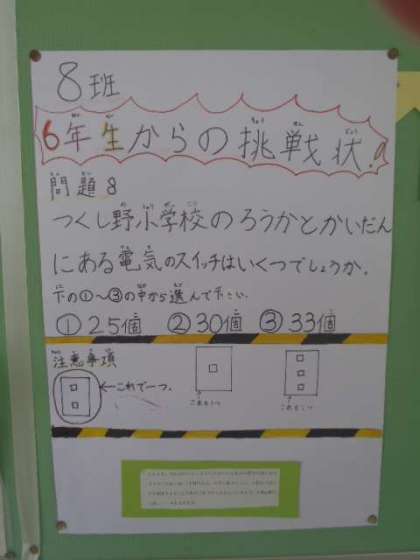 8班
6年生からの挑戦状!
問題8
つくし野小学校のろうかとかいだん
にある電気のスイッチはいくつでしょうか。
下の①〜③の中から選んで下さい。
①25個 ②30個 ③33個
注意事項
←これで一つ。
これも一つ
これも一つ